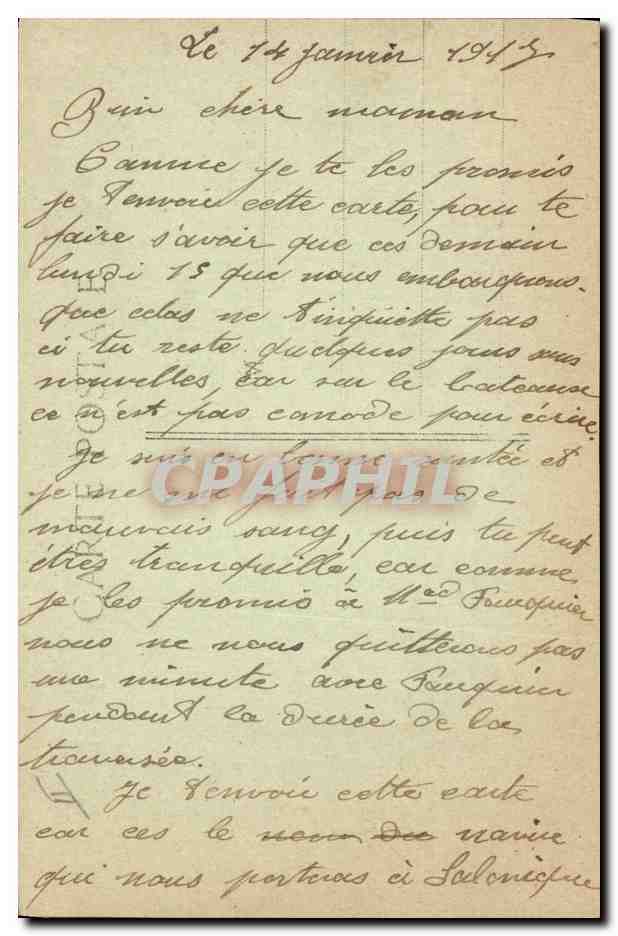 Le 14 janvier 1917
Bien chère maman
Comme je te les promis
je t'envoie cette carte, pour te
faire s'avoir que ces demain
lundi 15 que nous embarquons.
que celas ne t'inquiette pas
ci tu reste quelques jours sans
nouvelles, car sur le bateaux
ce n'est pas comode pour écrire.
Je suis en bonne santée et
je ne me fait pas de
mauvais sang, puis tu peut
êtres tranquille, car comme
je les promis à Mad Fauquier
nous ne nous quitterons pas
une minute avec Fauquier
pendant la durée de la
traversée.
Je t'envoie cette carte
car ces le navire
qui nous porteras à Salonique
CARTE POSTALE
CPAPHIL